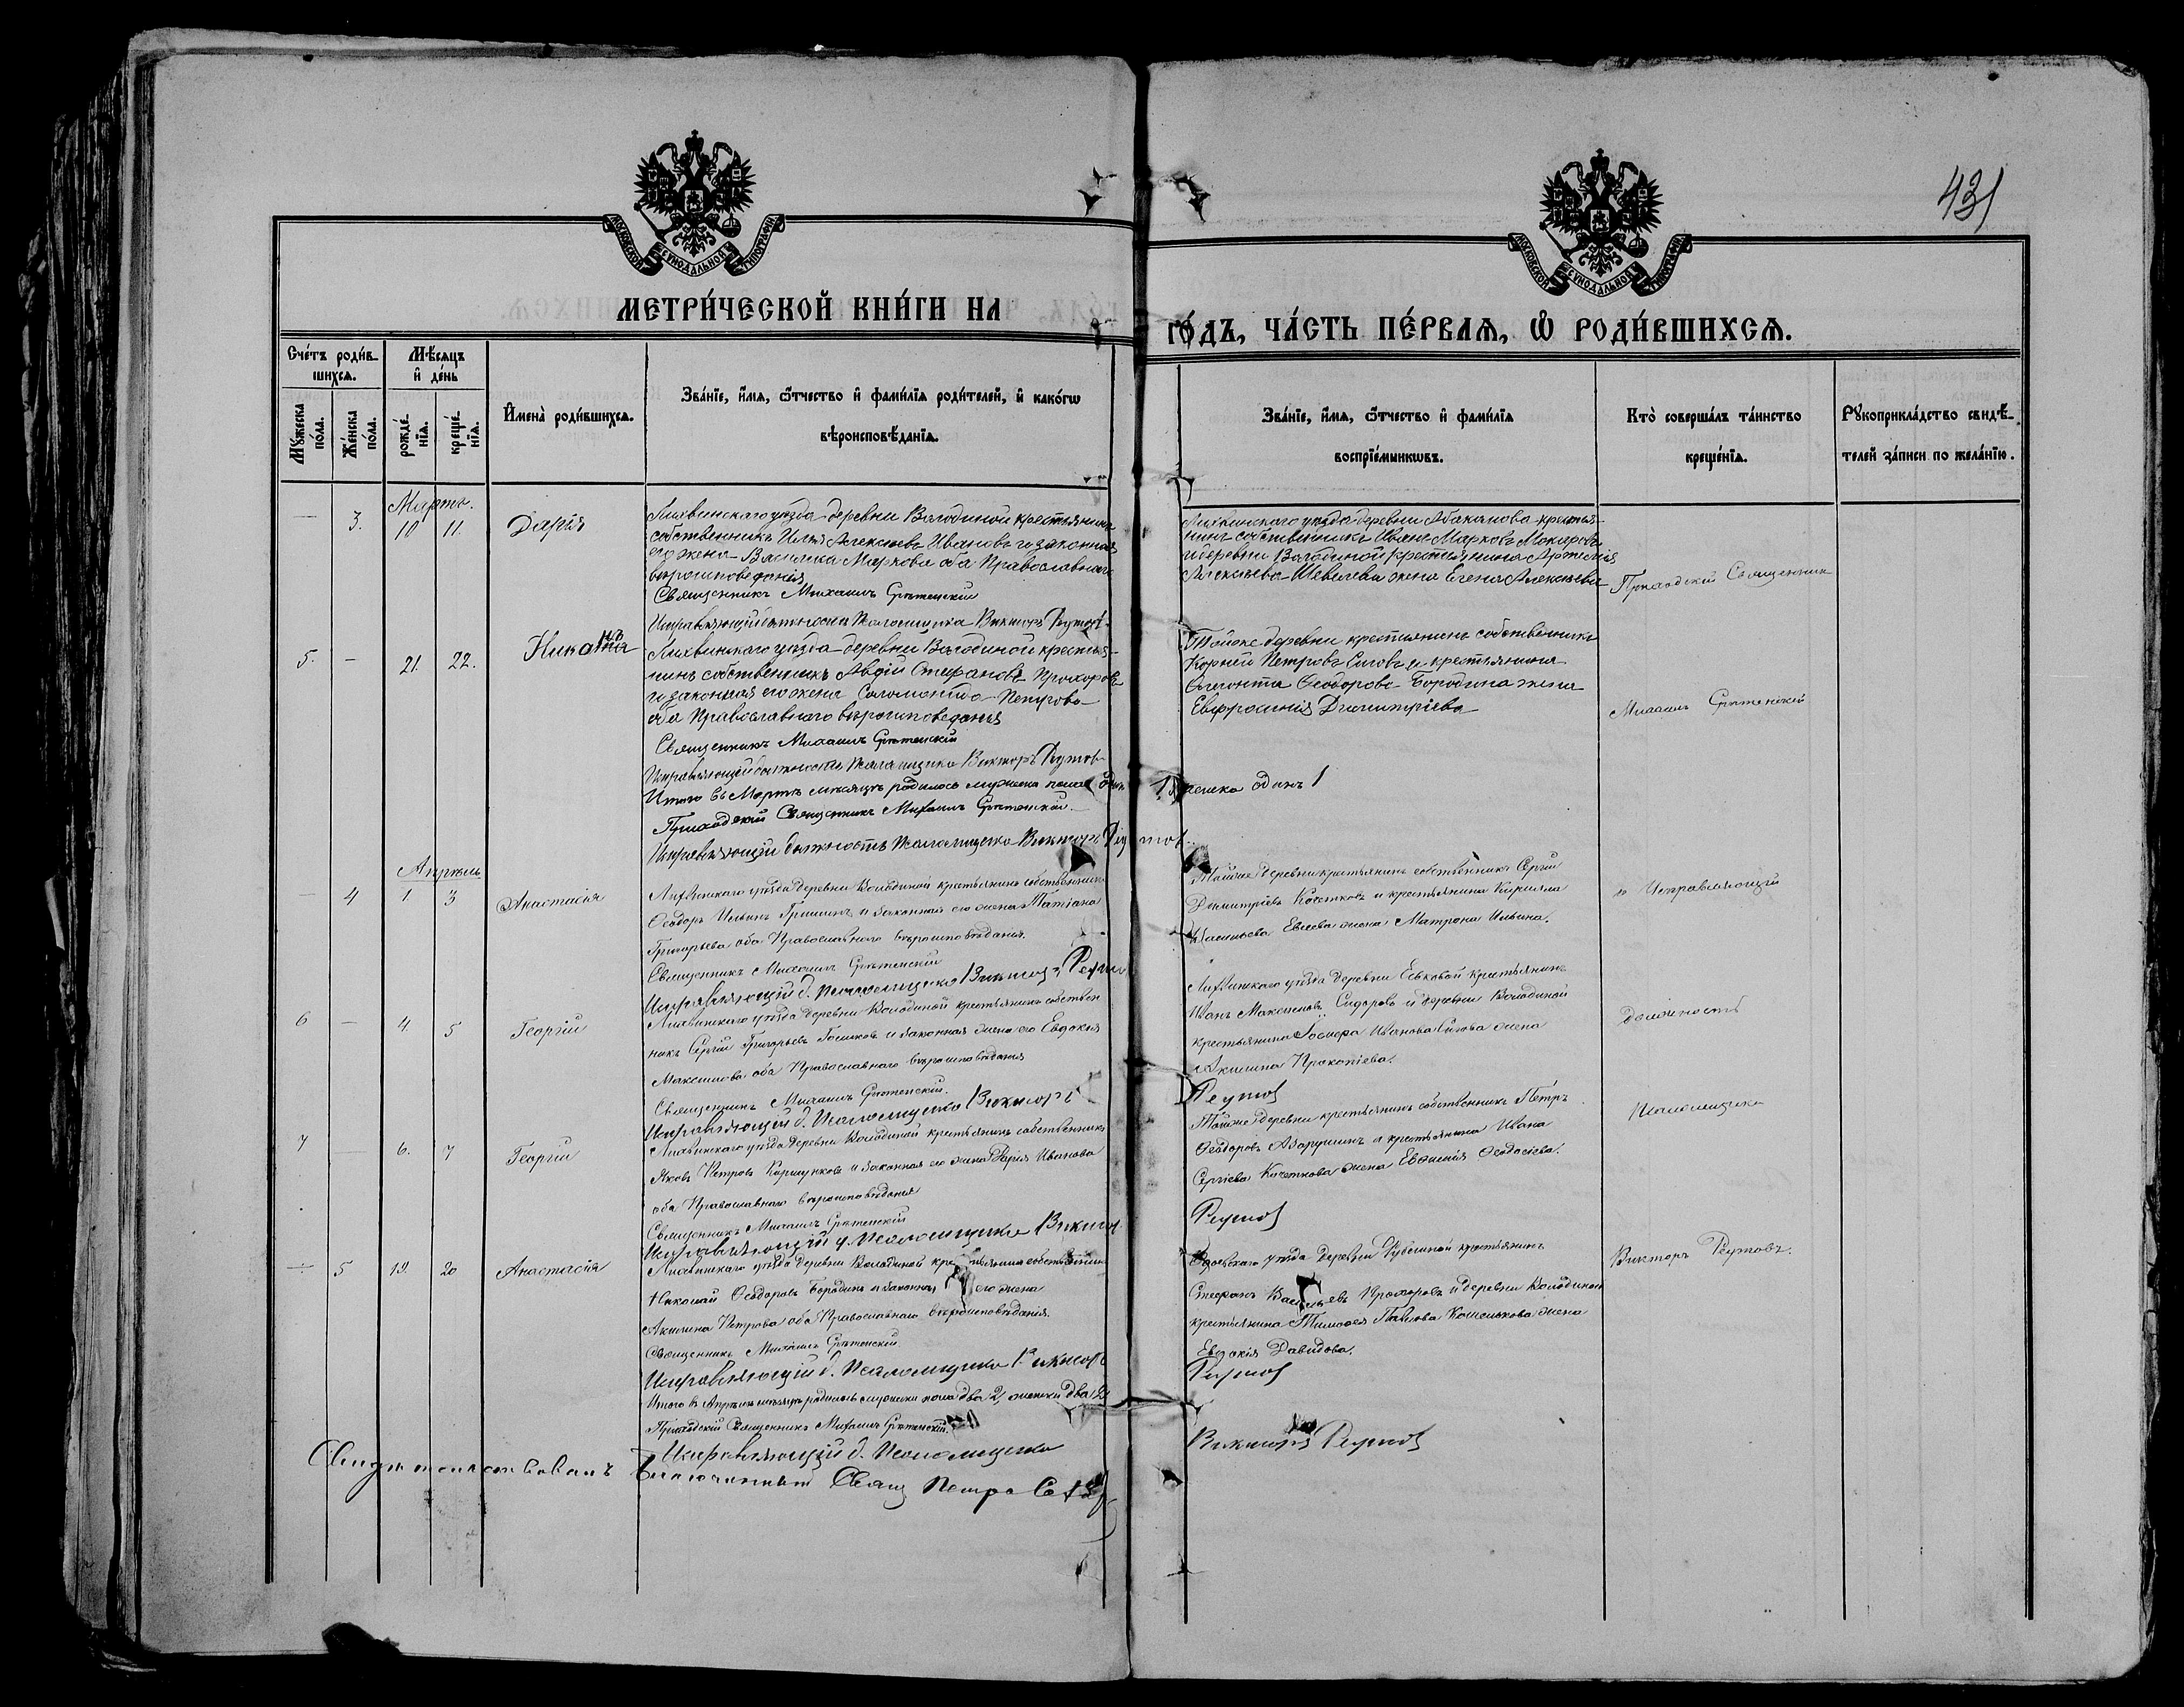 431
МОСКОВСКОЙ СѴНОДАЛЬНОЙ ТИПОГРАФІИ
МОСКОВСКОЙ СѴНОДАЛЬНОЙ ТИПОГРАФІИ
МЕТРИ́ЧЕСКОЙ КНИ́ГИ НА
ГО́ДЪ, ЧА́СТЬ ПЕ́РВАѦ, Ѡ҆ РОДИ́ВШИХСѦ.
Сче́тъ роди́в-
шихсѧ.
Мѣ́сѧцъ
и҆ де́нь
Мꙋ́жеска
по́ла.
Же́нска
по́ла.
рожде́-
нїѧ.
креще́-
нїѧ.
И҆мена̀ роди́вшихсѧ.
Зва́нїе, и҆́мѧ, ѻ҆́тчество и҆ фами́лїѧ роди́телей, и҆ како́гѡ
вѣроисповѣ́данїѧ.
Зва́нїе, и҆́мѧ, ѻ҆́тчество и҆ фами́лїѧ
воспрїе́мникѡвъ.
Кто̀ соверша́лъ та́инство
креще́нїѧ.
Рꙋкоприкла́дство свидѣ́-
телей за́писи по жела́нїю.
Марта.
— 3. 10 11. Дарія
Лихвинскаго уѣзда деревни Володиной крестьянинъ
собственникъ Илья Алексѣевъ Ивановъ и законная
его жена Василиса Маркова оба Православнаго
вѣроисповеданія
Священникъ Михаилъ Срѣтенскій
Исправляющій должность Псаломщика Викторъ Реутовъ
Лихвинскаго уѣзда деревни Абакумова крестья-
нинъ собственникъ Иванъ Марковъ Макаровъ
и деревни Володиной крестьянина Артемія
Алексѣева Шевелева жена Елена Алексѣева
Приходскій Священникъ
5. — 21. 22. Никита
Лихвинскаго уѣзда деревни Володиной крестья-
нинъ собственникъ Авдій Стефановъ Прохоровъ
и законная его жена Соломонида Петрова
оба Православнаго вѣроисповеданія
Священникъ Михаилъ Срѣтенскій
Исправляющій должность Псаломщика Викторъ Реутовъ
Тойже деревни крестьянинъ собственникъ
Корній Петровъ Сиговъ и крестьянина
Феодорова Бородина жена
Евфросинія Димитріева
Михаилъ Срѣтенскій
Итого въ Мартѣ мѣсяцѣ родилось мужеска пола одинъ 1 женска одинъ 1
Приходскій Священникъ Михаилъ Срѣтенскій
Исправляющій должность Псаломщика Викторъ Реутовъ
Апрѣль
— 4 1. 3 Анастасія
Лихвинскаго уѣзда деревни Володиной крестьянинъ собственникъ
Ѳеодоръ Ильинъ Гришинъ и законная его жена Татіана
Григорьева оба Православнаго вѣроисповѣданія.
Священникъ Михаилъ Срѣтенскій
Исправляющій д. Псаломщика Викторъ Реутовъ
Тойже деревни крестьянинъ собственникъ Сергій
Димитріевъ и крестьянина Кирилла
Васильева Евсеева жена Матрона Ильина.
и Исправляющій
6 — 4 5 Георгій
Лихвинскаго уѣзда деревни Володиной крестьянинъ собствен
никъ Сергій Григорьевъ и законная жена его Евдокія
Максимова оба Православнаго вѣроисповѣданія
Священникъ Михаилъ Срѣтенскій.
Исправляющій д. Псаломщика Викторъ Реутовъ
Лихвинскаго уѣзда деревни Еськовой крестьянинъ
Иванъ Максимовъ Сидоровъ и деревни Володиной
крестьянина Іосифа Иванова Сигова жена
Акилина Прокопіева.
должность
7 — 6. 7 Георгій
Лихвинскаго уѣзда деревни Володиной крестьянинъ собственникъ
Яковъ Петровъ Коршунковъ и законная его жена Марія Иванова
оба Православнаго вѣроисповѣданія
Священникъ Михаилъ Срѣтенскій
Исправляющій д. Псаломщика Викторъ Реутовъ
Тойже деревни крестьянинъ собственникъ Петръ
Ѳеодоровъ и крестьянина Ивана
Сергіева Кочеткова жена Евфимія Ѳеодосіева.
Псаломщика
— 5 19. 20 Анастасія
Лихвинскаго уѣзда деревни Володиной крестьянинъ собственникъ
Николай Ѳеодоровъ Бородинъ и законная его жена
Акилина Петрова оба Православнаго вѣроисповѣданія.
Священникъ Михаилъ Срѣтенскій
Исправляющій д. Псаломщика Викторъ Реутовъ
уѣзда деревни крестьянинъ
Стефанъ Васильевъ Прохоровъ и деревни Володиной
крестьянина Тимофея Павлова Кошелькова жена
Евдокія Давидова.
Викторъ Реутовъ.
Итого въ Апрѣлѣ мѣсяцѣ родилось мужеска пола два 2, женска два 2
Приходскій Священникъ Михаилъ Срѣтенскій.
Исправляющій д. Псаломщика Викторъ Реутовъ
Свидѣтельствовалъ Благочинный Свящ Петръ